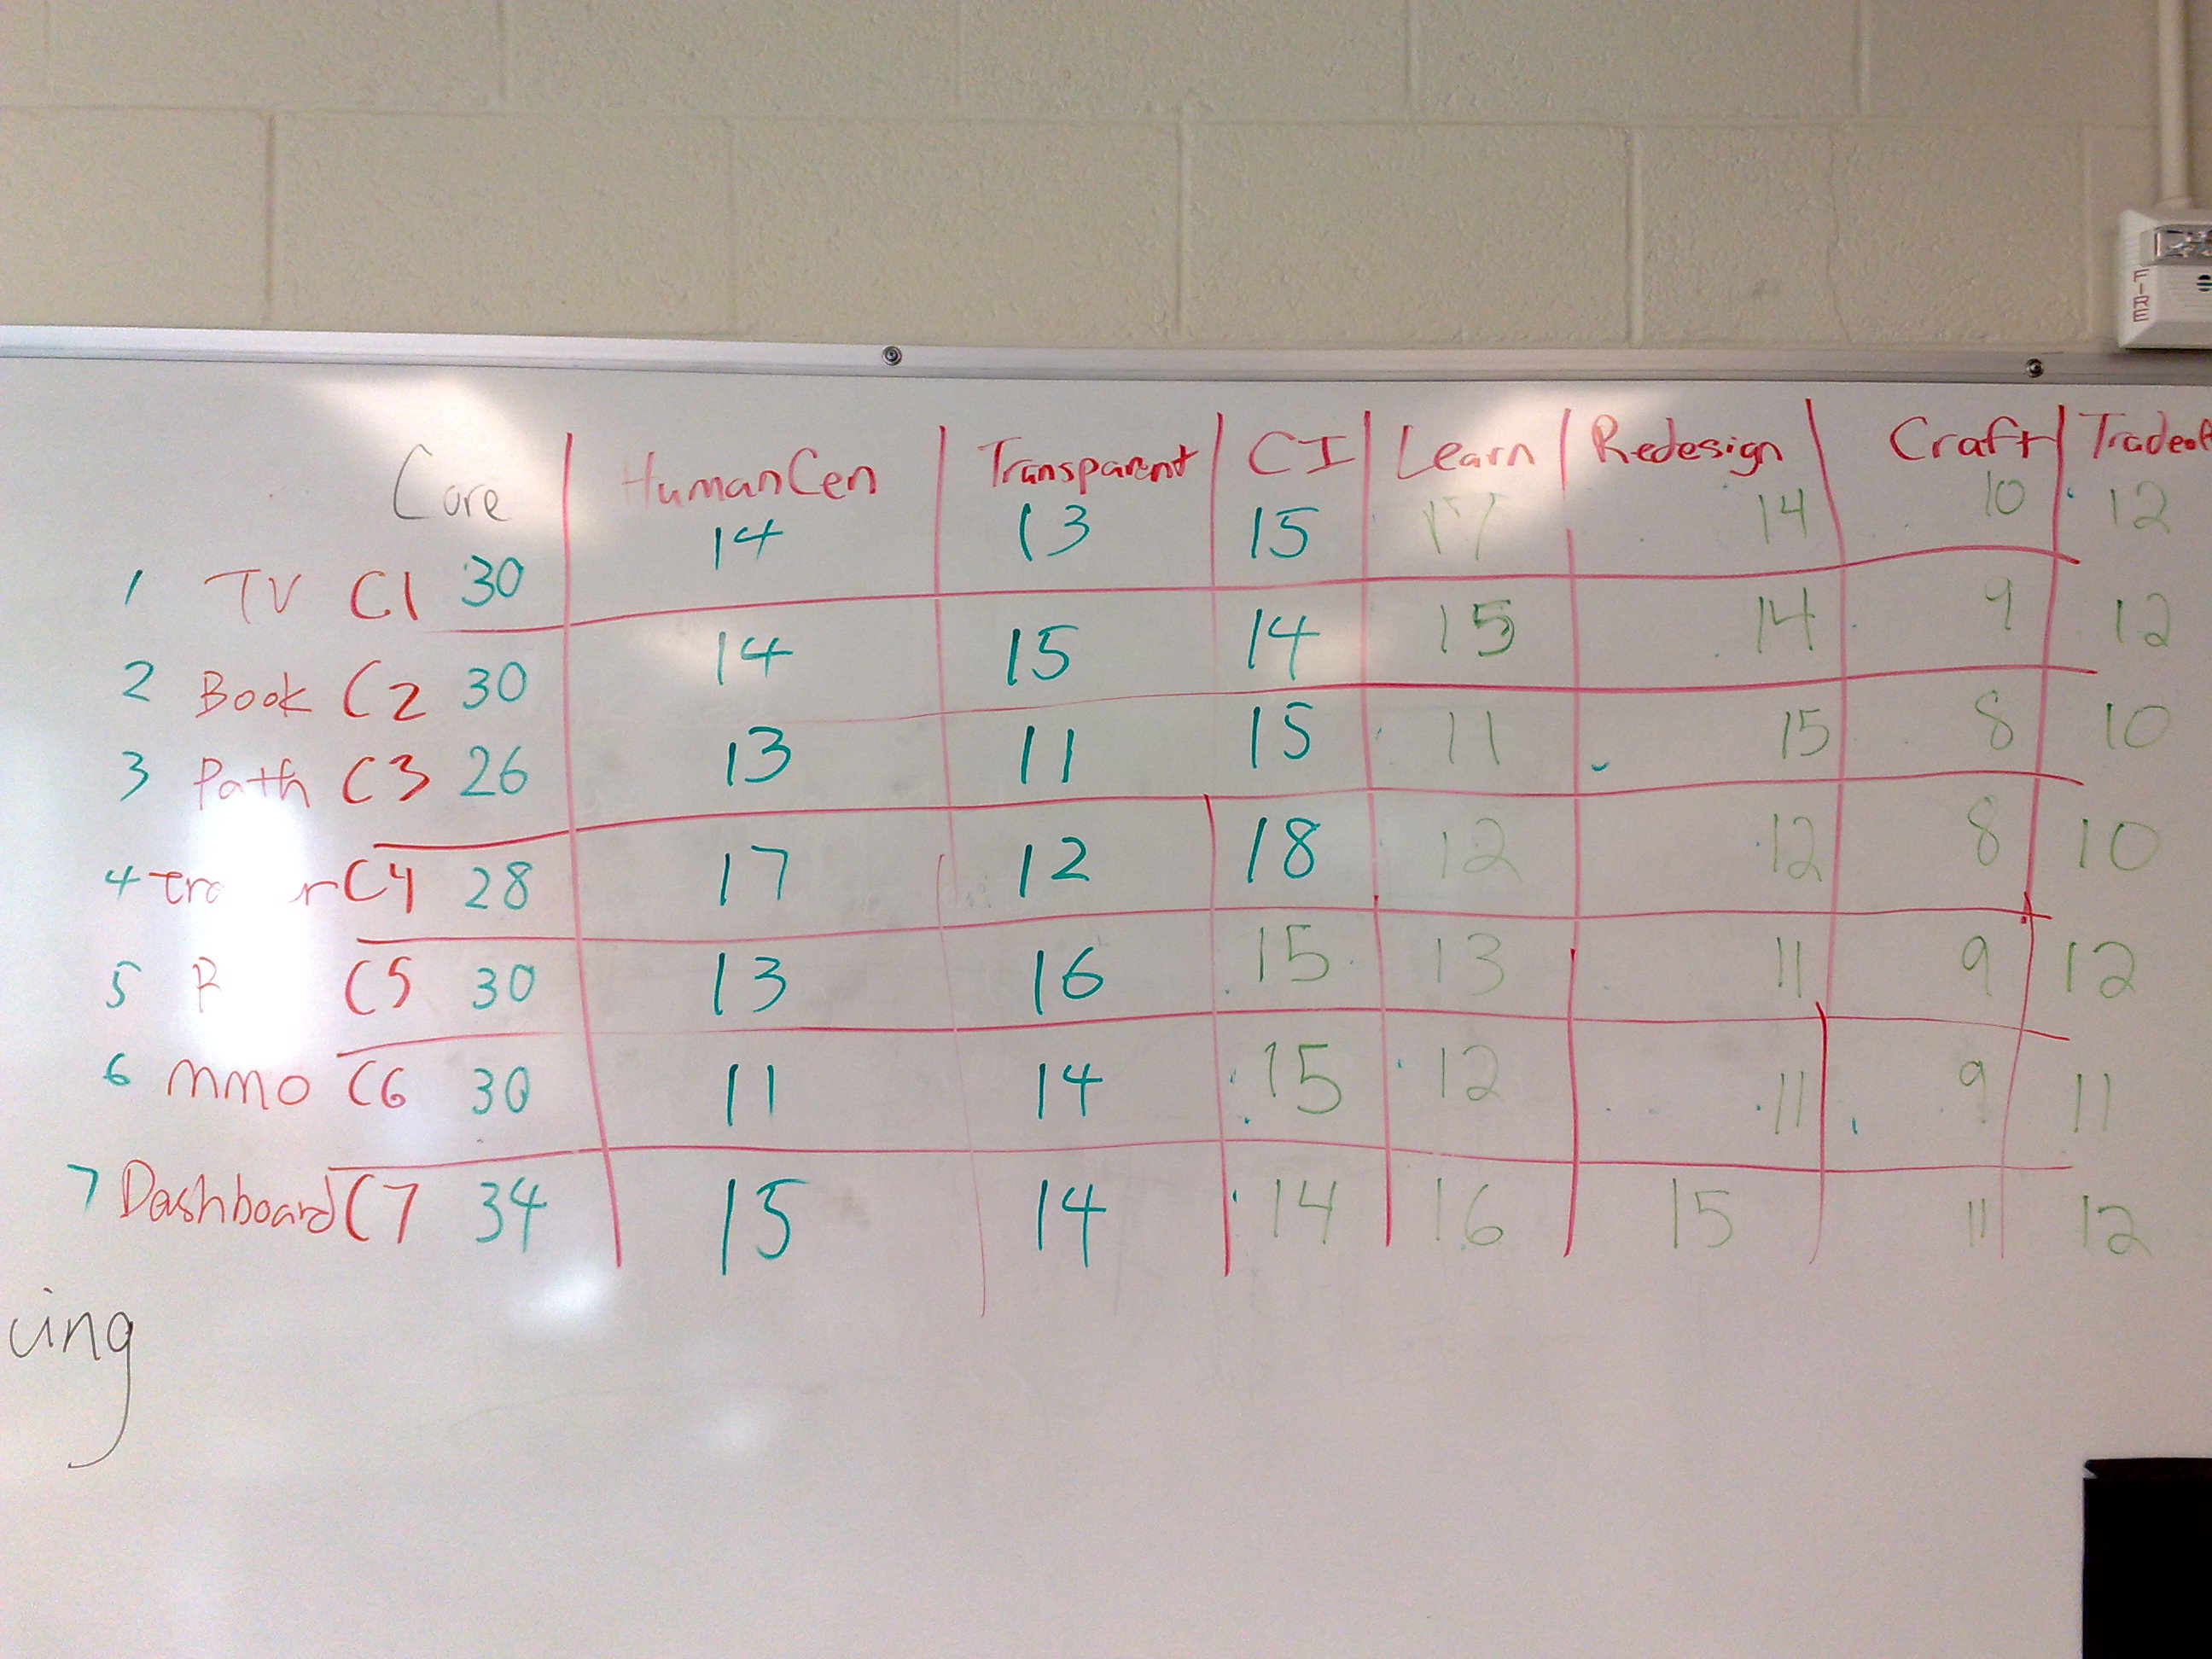 FIRE
Core HumanCen Transparent CI Learn Redesign Craft Tradeoff
1 TV C1 30 14 13 15 17 14 10 12
2 Book C2 30 14 15 14 15 14 9 12
3 Path C3 26 13 11 15 11 15 8 10
4 C4 28 17 12 18 12 12 8 10
5 C5 30 13 16 15 13 11 9 12
6 MMO C6 30 11 14 15 12 11 9 11
7 Dashboard C7 34 15 14 14 16 15 11 12
cing